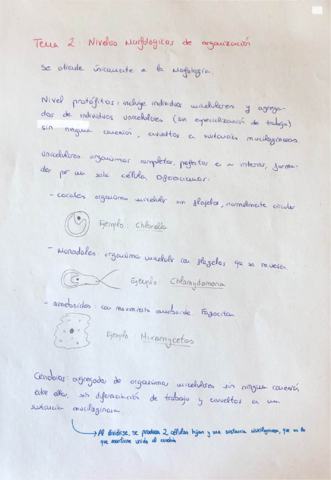 Tema 2: Niveles Morfológicos de organización
Se atiende únicamente a la Morfología.
Nivel protófitos: incluye individuos unicelulares y agrega-
dos de individuos unicelulares (sin especialización de trabajo)
sin ninguna conexión, envueltos en sustancia mucilaginosa
Unicelulares: organismos completos, perfectos e forma-
dos por una sola célula.
- cocales: organismo unicelular sin flagelos, normalmente circular
Ejemplo: Chlorella
- Monadales: organismo unicelular con flagelos que se mueven
Ejemplo: Chlamydomona
- ameboides: con movimiento ameboide. Fagocitan
Ejemplo: Mixomycetos
Cenobios: agregados de organismos unicelulares sin ninguna conexión
entre ellos, sin diferenciación de trabajo y envueltos en una
sustancia mucilaginosa
Al dividirse, se producen 2 células hijas y una sustancia mucilaginosa, que es lo
que mantiene unido el cenobio